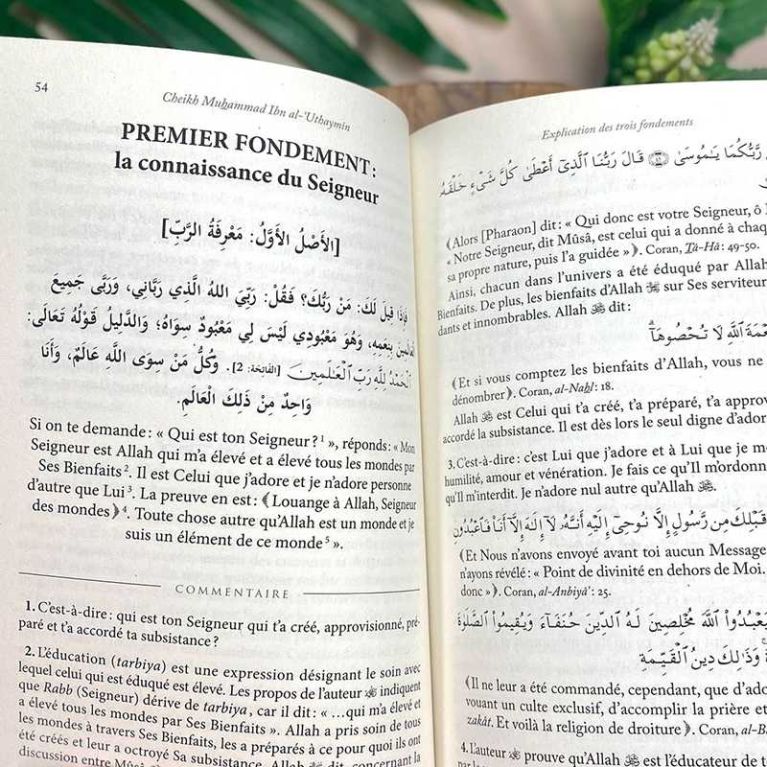 54
Cheikh Muhammad Ibn al-'Uthaymin
PREMIER FONDEMENT :
la connaissance du Seigneur
[الأَصْلُ الأَوَّلُ: مَعْرِفَةُ الرَّبِّ]
فَإِذَا قِيلَ لَكَ: مَنْ رَبُّكَ؟ فَقُلْ: رَبِّيَ اللهُ الَّذِي رَبَّانِي، وَرَبَّى جَمِيعَ
العَالَمِينَ بِنِعَمِهِ، وَهُوَ مَعْبُودِي لَيْسَ لِي مَعْبُودٌ سِوَاهُ؛ وَالدَّلِيلُ قَوْلُهُ تَعَالَى:
ٱلْحَمْدُ لِلَّهِ رَبِّ ٱلْعَـٰلَمِينَ [الفَاتِحَة: 2]. وَكُلُّ مَنْ سِوَى اللَّهِ عَالَمٌ، وَأَنَا
وَاحِدٌ مِنْ ذَلِكَ العَالَمِ.
Si on te demande : « Qui est ton Seigneur ?¹ », réponds : « Mon
Seigneur est Allah qui m'a élevé et a élevé tous les mondes par
Ses Bienfaits². Il est Celui que j'adore et je n'adore personne
d'autre que Lui³. La preuve en est : ⟪Louange à Allah, Seigneur
des mondes⟫⁴. Toute chose autre qu'Allah est un monde et je
suis un élément de ce monde⁵ ».
COMMENTAIRE
1. C'est-à-dire : qui est ton Seigneur qui t'a créé, approvisionné, pré-
paré et t'a accordé ta subsistance ?
2. L'éducation (tarbiya) est une expression désignant le soin avec
lequel celui qui est éduqué est élevé. Les propos de l'auteur indiquent
que Rabb (Seigneur) dérive de tarbiya, car il dit : « …qui m'a élevé et
a élevé tous les mondes par Ses Bienfaits ». Allah a pris soin de tous
les mondes à travers Ses Bienfaits, les a préparés à ce pour quoi ils ont
été créés et leur a octroyé Sa subsistance. Allah dit, concernant la
discussion entre Mûsâ
Explication des trois fondements
رَّبُّكُمَا يَـٰمُوسَىٰ ۝ قَالَ رَبُّنَا ٱلَّذِىٓ أَعْطَىٰ كُلَّ شَىْءٍ خَلْقَهُۥ
⟪Alors [Pharaon] dit : « Qui donc est votre Seigneur, ô
« Notre Seigneur, dit Mûsâ, est celui qui a donné à chaq
sa propre nature, puis l'a guidée »⟫. Coran, Tâ-Hâ : 49-50.
Ainsi, chacun dans l'univers a été éduqué par Allah
Bienfaits. De plus, les bienfaits d'Allah ﷻ sur Ses serviteur
dants et innombrables. Allah ﷻ dit :
نِعْمَةَ ٱللَّهِ لَا تُحْصُوهَآ
⟪Et si vous comptez les bienfaits d'Allah, vous ne
dénombrer⟫. Coran, al-Nahl : 18.
Allah ﷻ est Celui qui t'a créé, t'a préparé, t'a approv
accordé la subsistance. Il est dès lors le seul digne d'ador
3. C'est-à-dire : c'est Lui que j'adore et à Lui que je m
humilité, amour et vénération. Je fais ce qu'Il m'ordonn
qu'Il m'interdit. Je n'adore nul autre qu'Allah ﷻ.
قَبْلِكَ مِن رَّسُولٍ إِلَّا نُوحِىٓ إِلَيْهِ أَنَّهُۥ لَآ إِلَـٰهَ إِلَّآ أَنَا۠ فَٱعْبُدُونِ
⟪Et Nous n'avons envoyé avant toi aucun Message
n'ayons révélé : « Point de divinité en dehors de Moi.
donc »⟫. Coran, al-Anbiyâ' : 25.
لِيَعْبُدُوا۟ ٱللَّهَ مُخْلِصِينَ لَهُ ٱلدِّينَ حُنَفَآءَ وَيُقِيمُوا۟ ٱلصَّلَوٰةَ
وَذَٰلِكَ دِينُ ٱلْقَيِّمَةِ
⟪Il ne leur a été commandé, cependant, que d'ado
vouant un culte exclusif, d'accomplir la prière et
zakât. Et voilà la religion de droiture⟫. Coran, al-B
4. L'auteur prouve qu'Allah ﷻ est l'éducateur de t